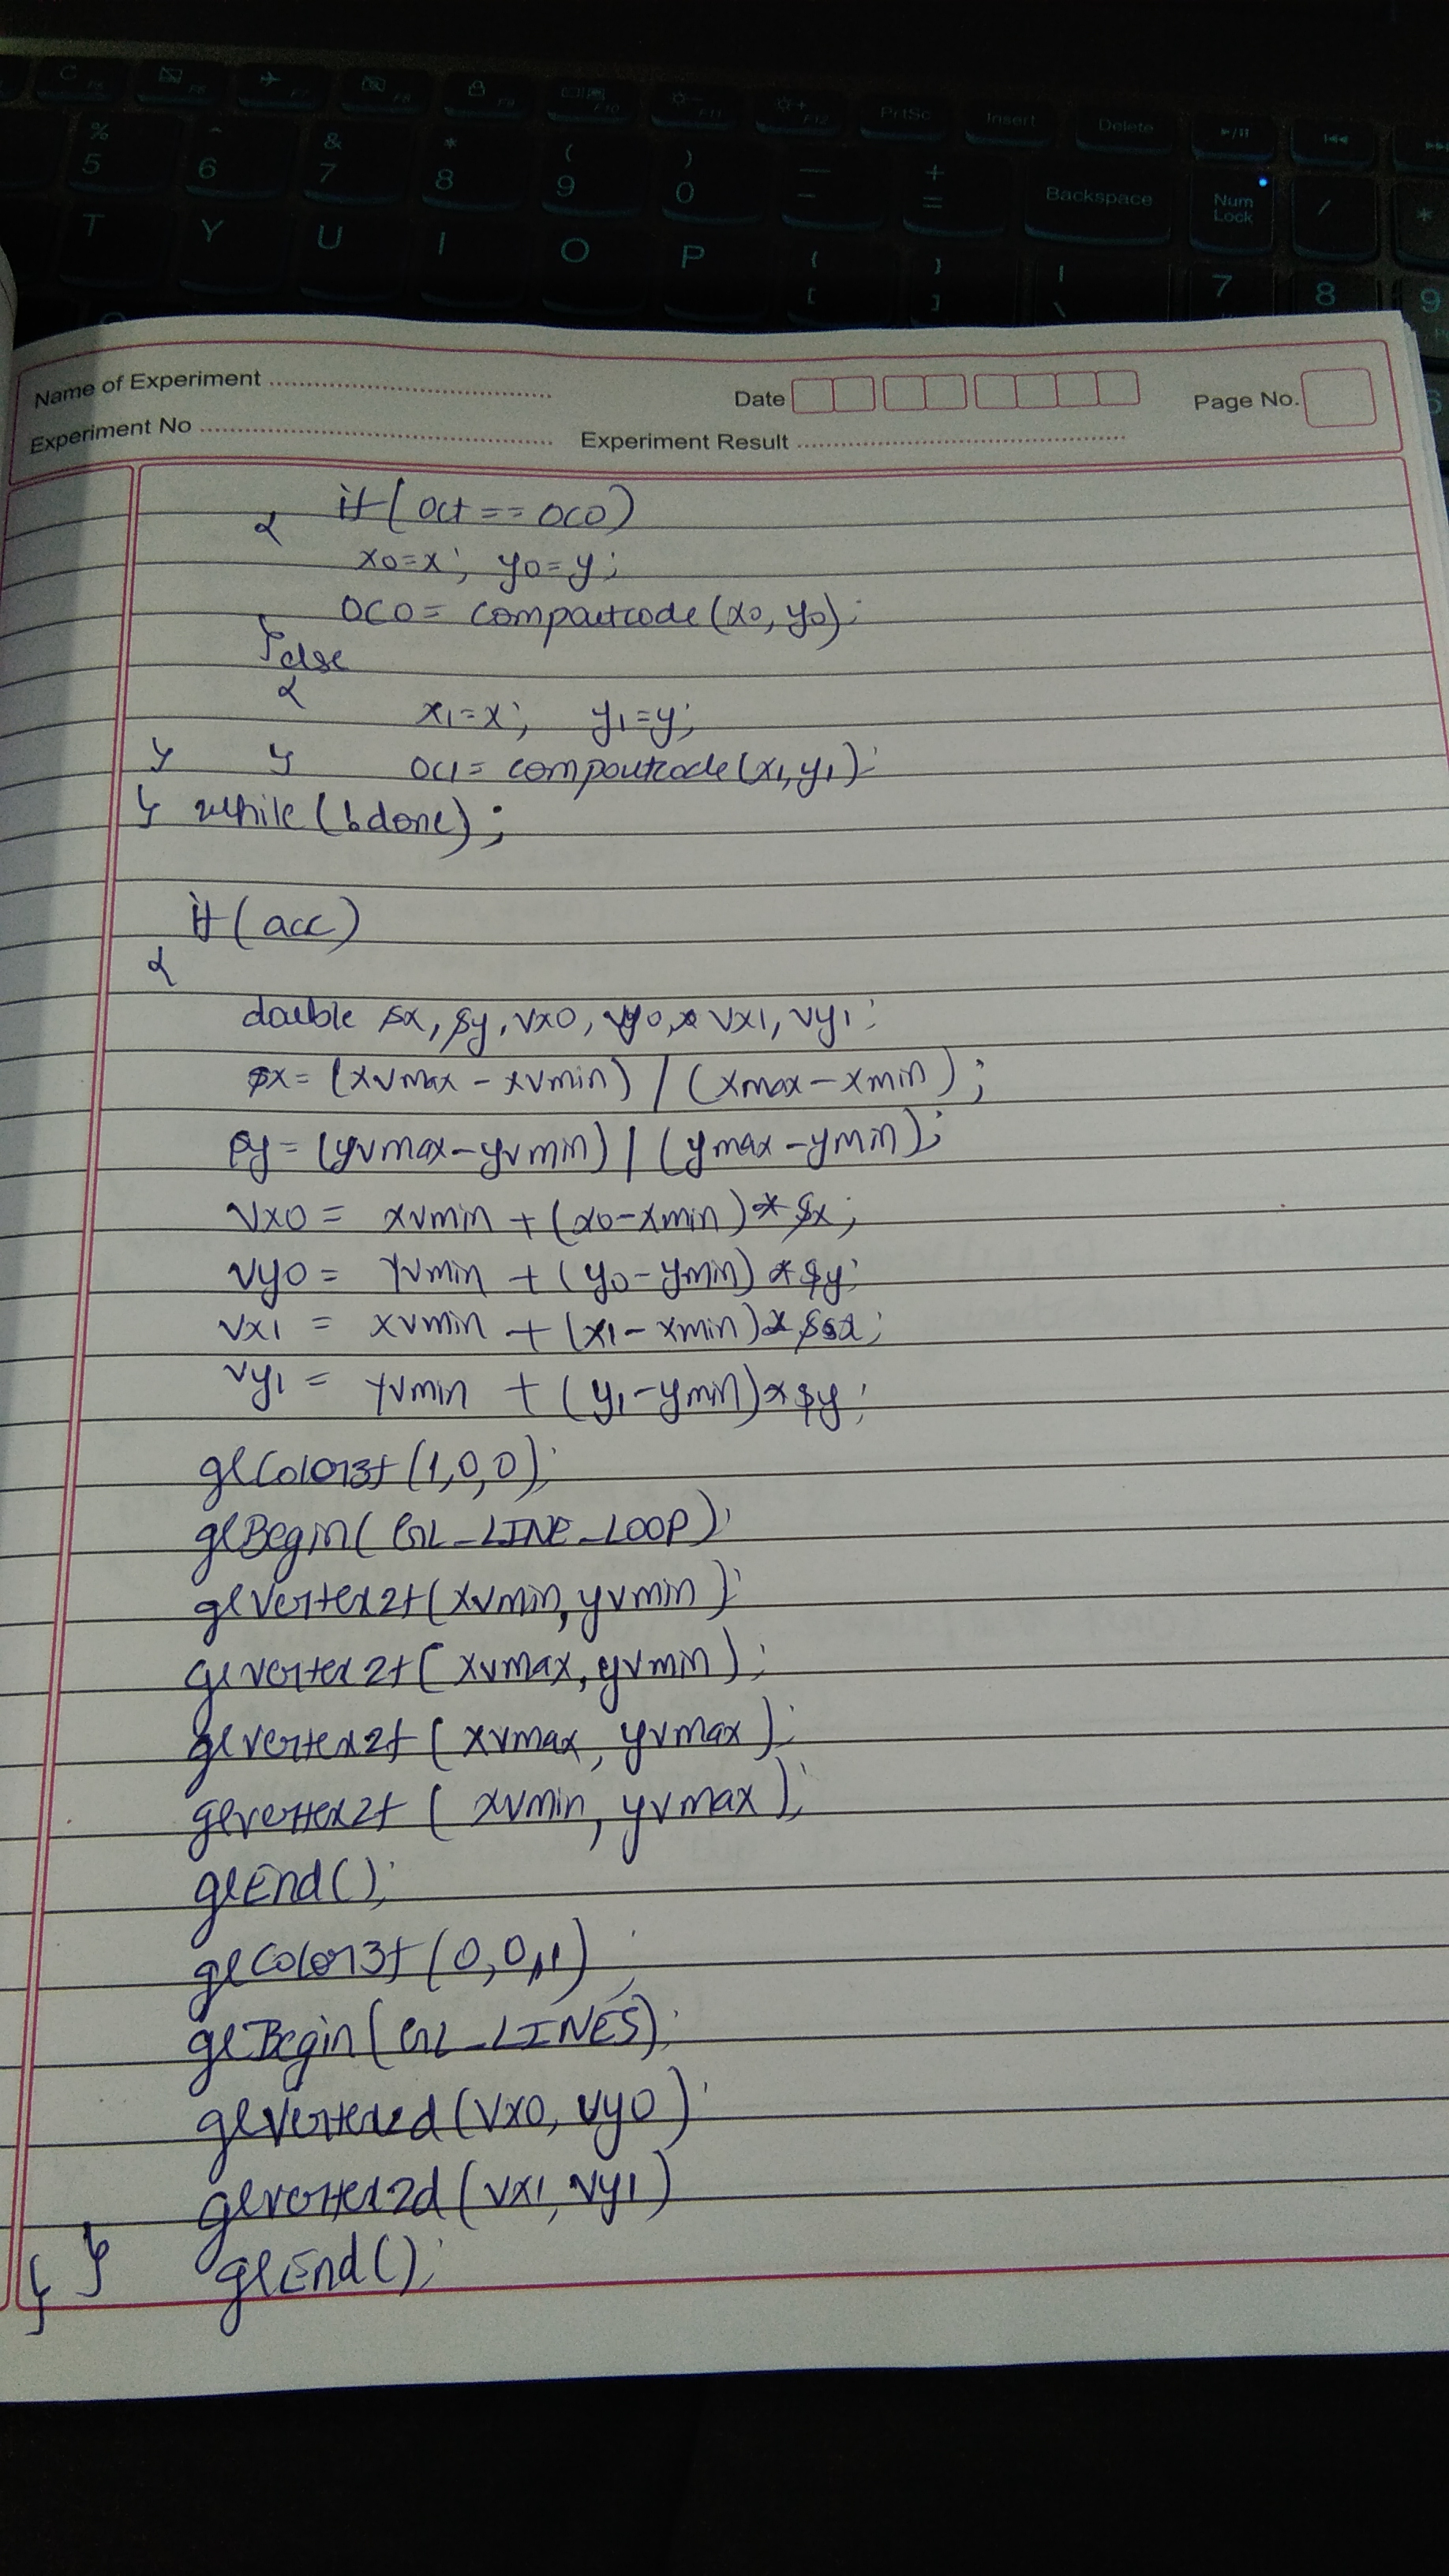 C F5 F6 F7 F8 F9 F10 F11 F12 PrtSc Insert Delete
% 5 ^ 6 & 7 * 8 ( 9 ) 0 — - + = Backspace Num Lock / *
T Y U I O P { [ } ] | \ 7 8 9
Name of Experiment Date Page No.
Experiment No Experiment Result
if (oct == oc0)
{
x0=x; y0=y;
oc0 = compoutcode(x0, y0);
} else
{
x1=x; y1=y;
} } oc1 = compoutcode(x1, y1);
} while (!done);
if (acc)
{
double sx, sy, vx0, vy0, vx1, vy1;
sx = (xvmax - xvmin) / (xmax - xmin);
sy = (yvmax - yvmin) / (ymax - ymin);
vx0 = xvmin + (x0 - xmin) * sx;
vy0 = yvmin + (y0 - ymin) * sy;
vx1 = xvmin + (x1 - xmin) * sx;
vy1 = yvmin + (y1 - ymin) * sy;
glColor3f (1,0,0);
glBegin( GL_LINE_LOOP);
glVertex2f (xvmin, yvmin);
glvertex2f ( xvmax, yvmin);
glvertex2f ( xvmax, yvmax);
glvertex2f ( xvmin, yvmax);
glEnd();
glColor3f (0,0,1);
glBegin(GL_LINES);
glVertex2d (vx0, vy0);
glvertex2d (vx1, vy1)
} } glEnd();